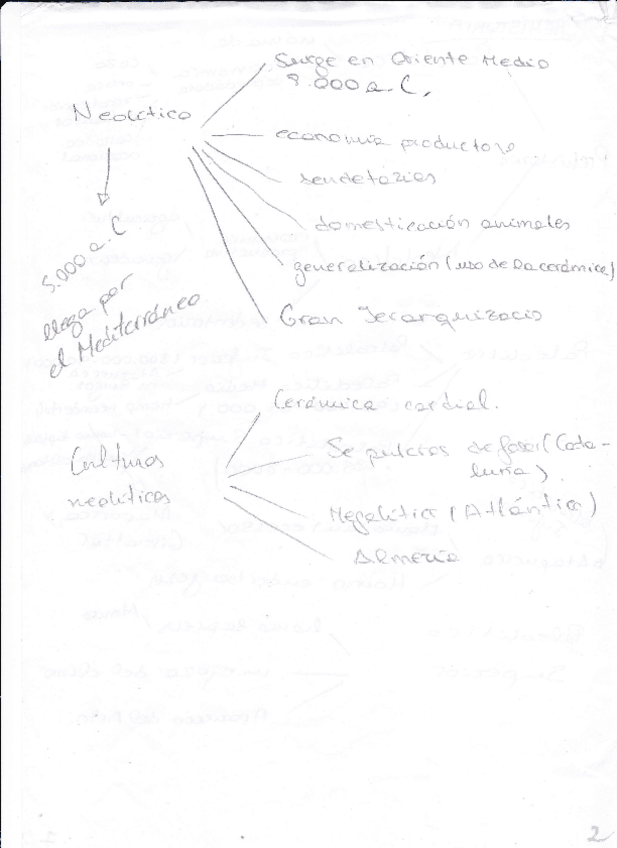 Surge en Oriente Medio
8.000 a. C.
Neolítico
economía productora
sendetarios
domesticación animales
generalización (uso de la cerámica)
Gran Jerarquizacio
5.000 a. C
llega por
el Mediterráneo
Cerámica cardial.
Culturas
neolíticas
Sepulcros de fosa (Cata-
luña).
Megalítica (Atlántica)
Almería
2